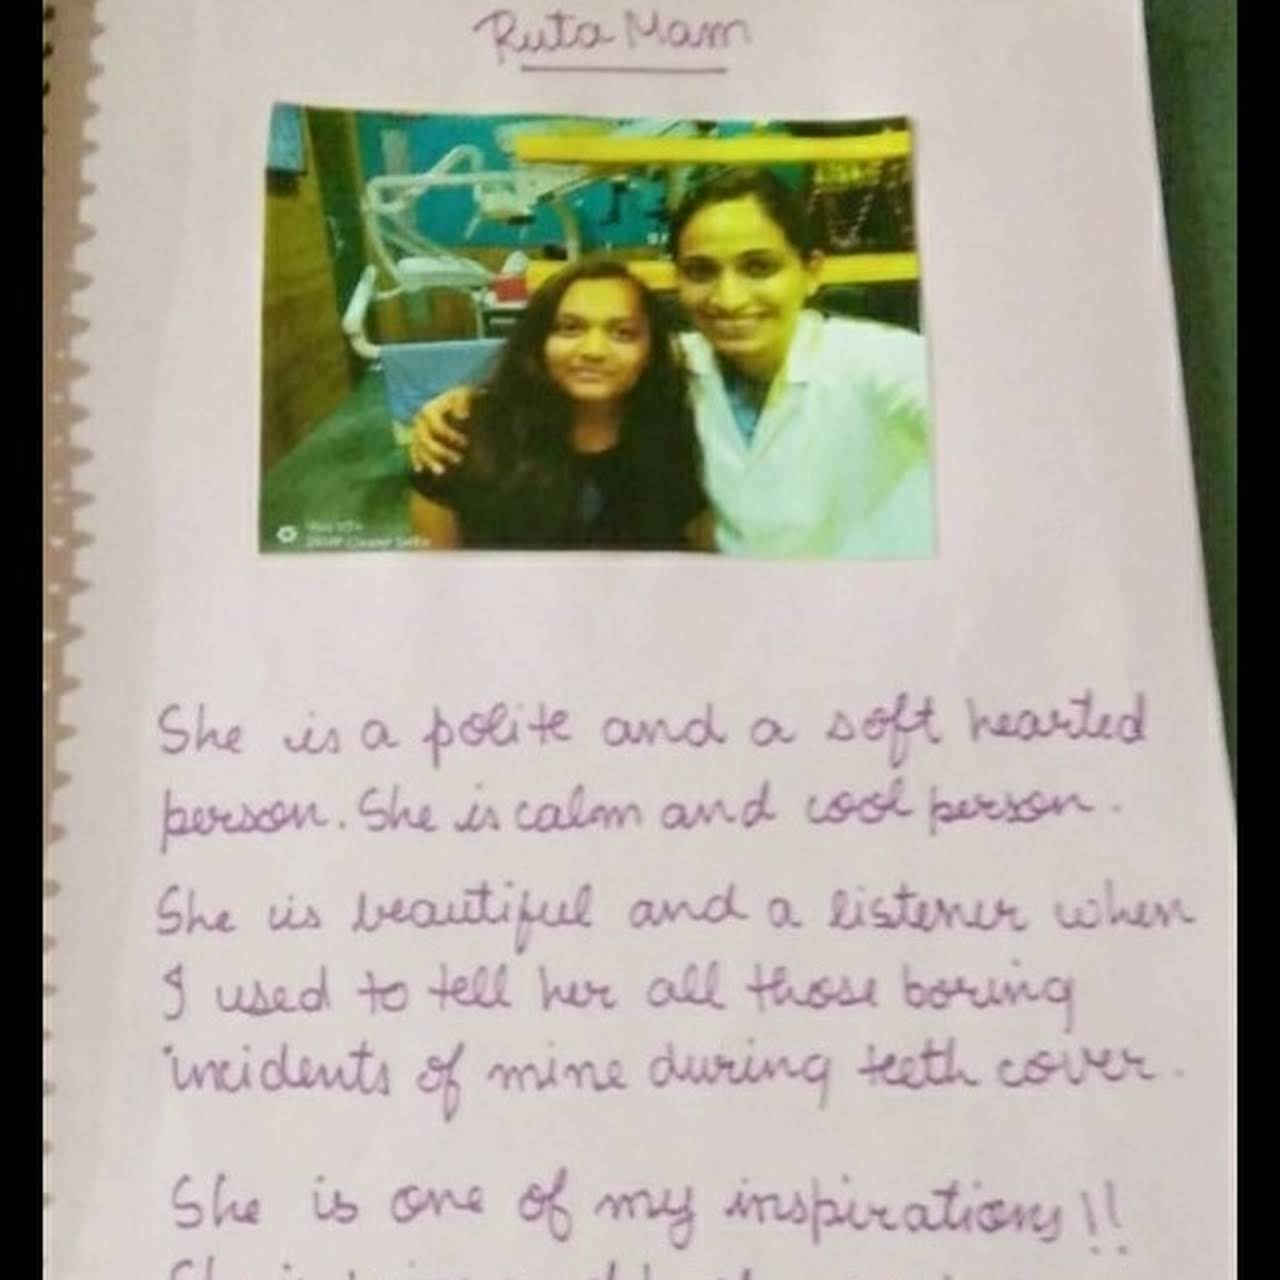 Ruta Mam
She is a polite and a soft hearted
person. She is calm and cool person.
She is beautiful and a listener when
I used to tell her all those boring
incidents of mine during teeth cover.
She is one of my inspirations!!